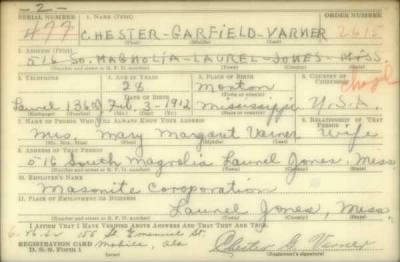 -2-
SERIAL NUMBER 1. NAME (Print) ORDER NUMBER
477 CHESTER-GARFIELD-VARNER 2615
(First) (Middle) (Last)
2. ADDRESS (Print)
516 SO. MAGNOLIA-LAUREL-JONES-MISS.
(Number and street or R. F. D. number) (Town) (County) (State)
3. TELEPHONE 4. AGE IN YEARS 5. PLACE OF BIRTH 6. COUNTRY OF CITIZENSHIP
28 Morton
(Town or county)
Laurel Feb. 3-1912 Mississippi U.S.A.
(Exchange) (Number) (Mo.) (Day) (Yr.) (State or country)
7. NAME OF PERSON WHO WILL ALWAYS KNOW YOUR ADDRESS 8. RELATIONSHIP OF THAT PERSON
Mrs. Mary Margaret Varner Wife
(Mr., Mrs., Miss) (First) (Middle) (Last)
9. ADDRESS OF THAT PERSON
516 South Magnolia Laurel Jones, Miss
(Number and street or R. F. D. number) (Town) (County) (State)
10. EMPLOYER'S NAME
Masonite Corporation
11. PLACE OF EMPLOYMENT OR BUSINESS
Laurel Jones, Miss
(Number and street or R. F. D. number) (Town) (County) (State)
I AFFIRM THAT I HAVE VERIFIED ABOVE ANSWERS AND THAT THEY ARE TRUE.
156 St. Emanuel St.
REGISTRATION CARD Mobile, Ala Chester G. Varner
D. S. S. FORM 1